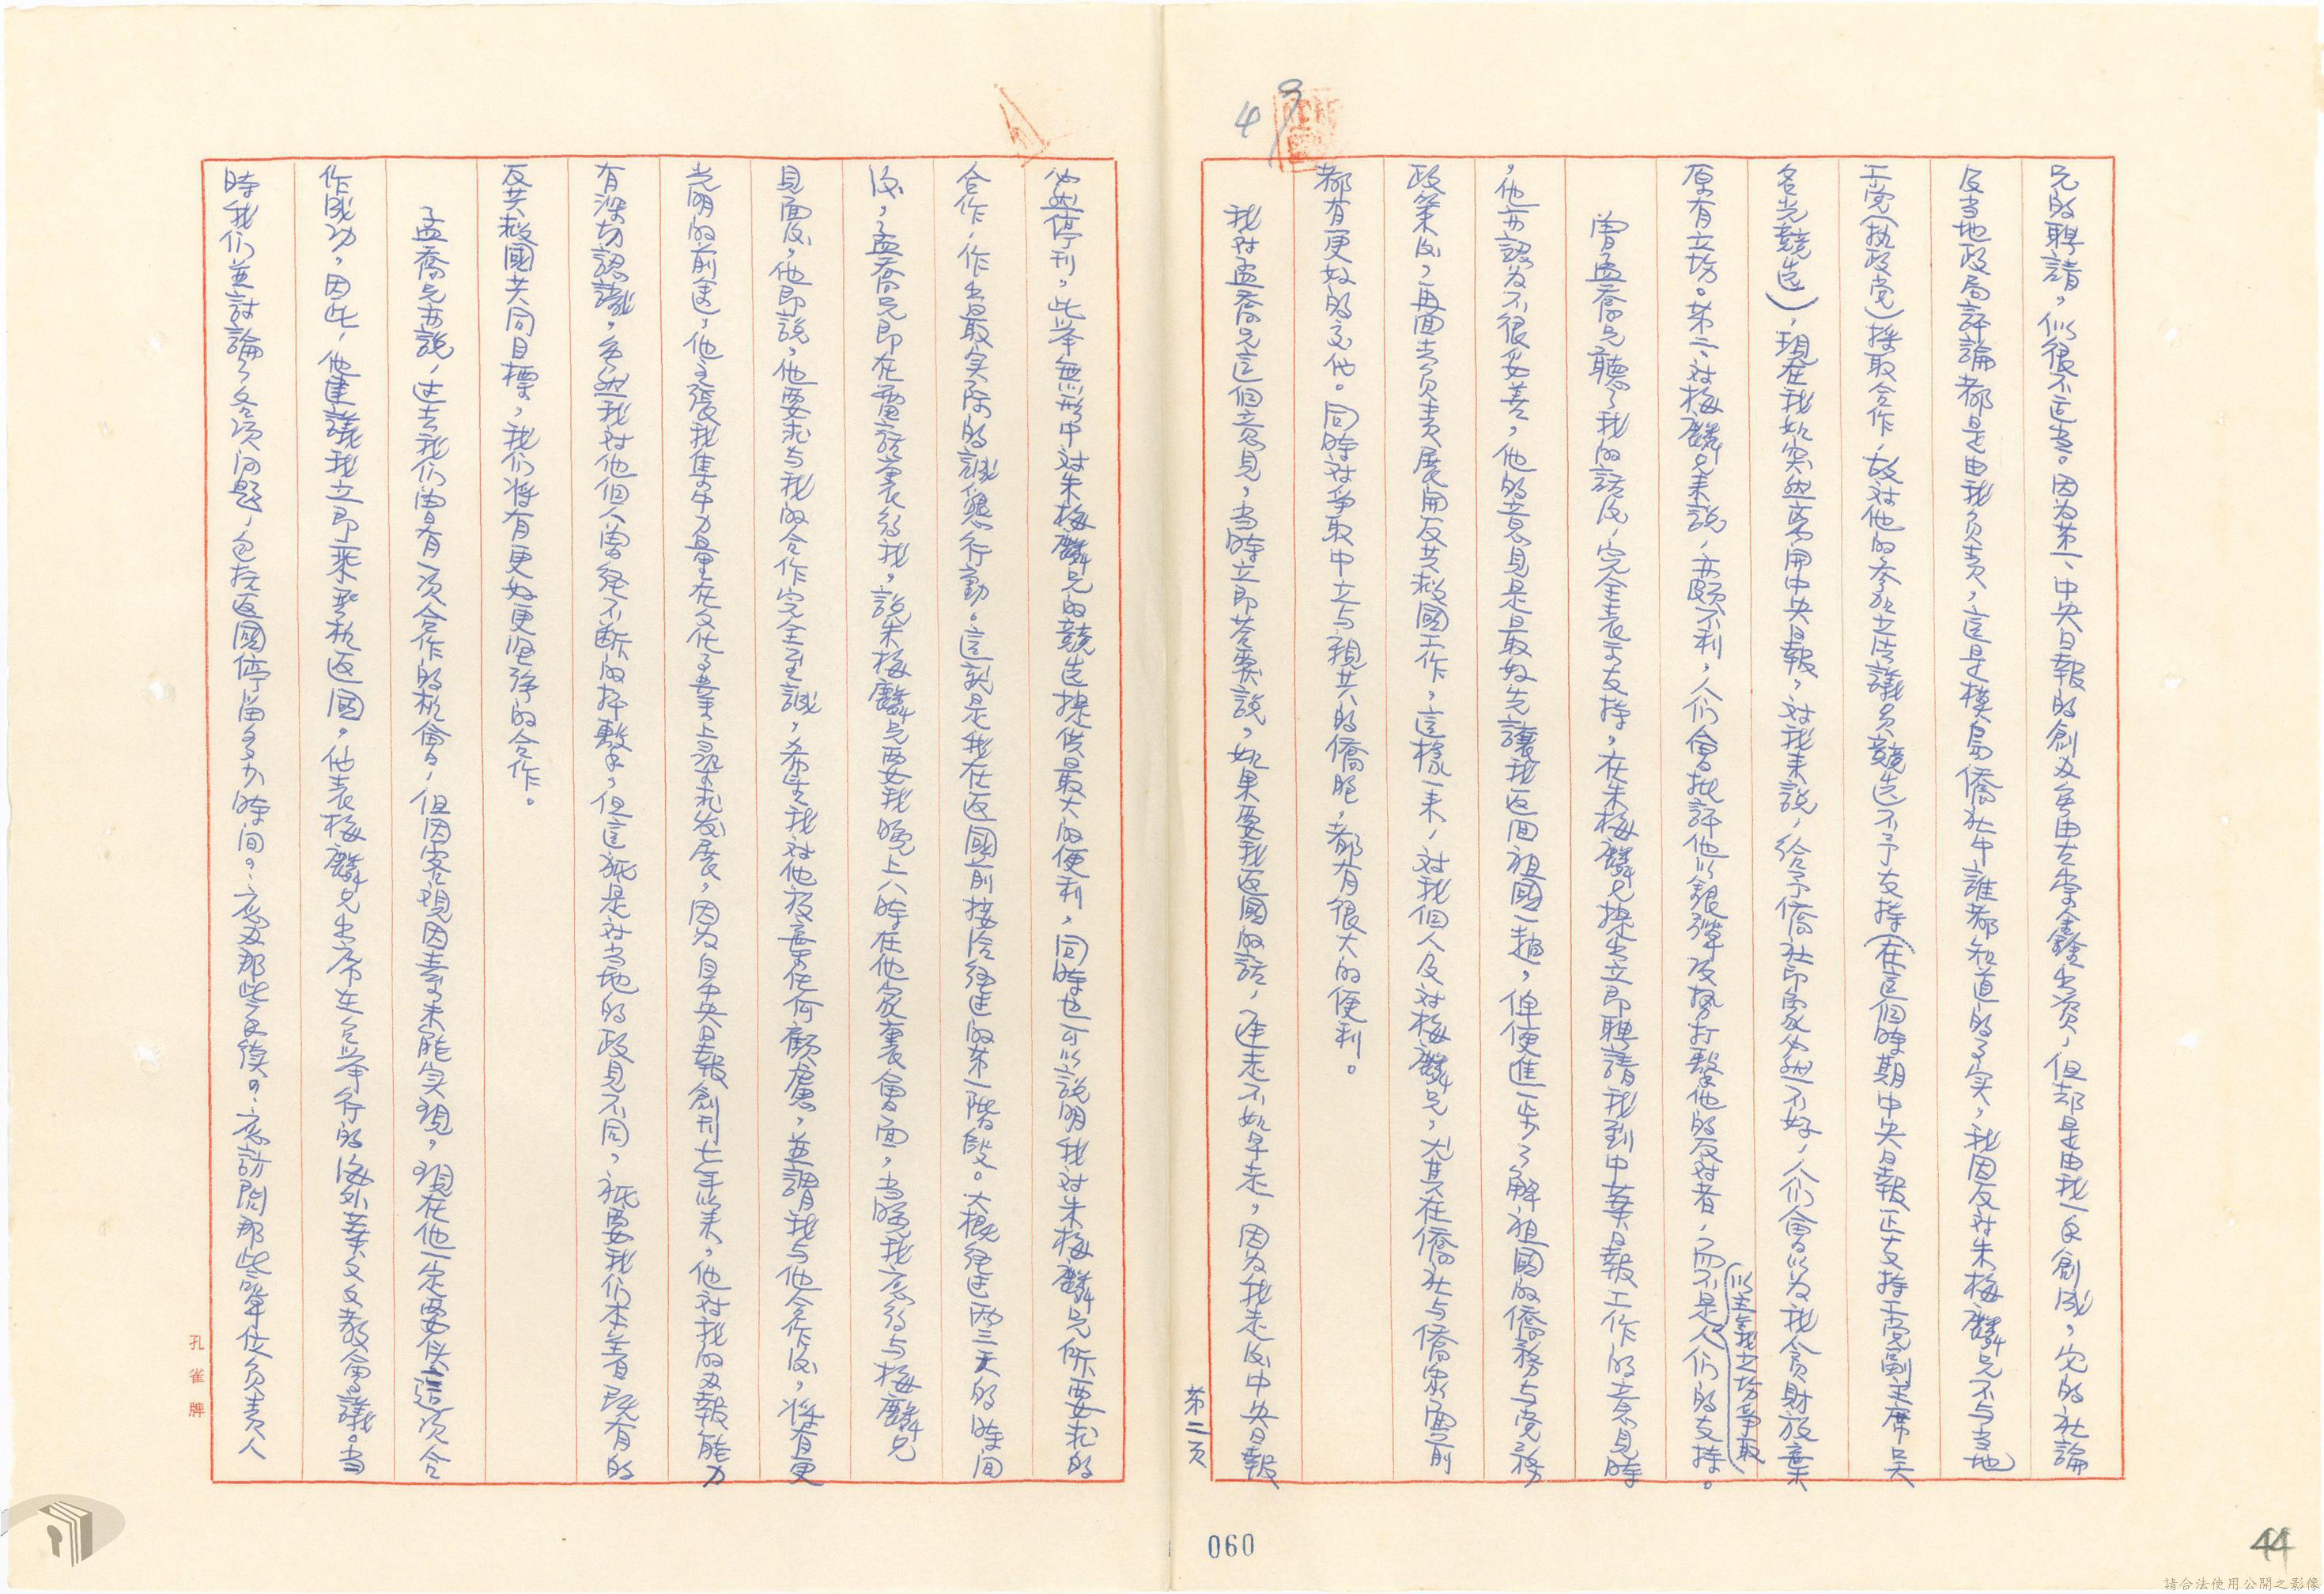 兄的聘請，似很不適当。因为第一、中央日報的創办虽由左 鑫出資，但却是由我一手創成，它的社論
及当地政局評論都是由我负责，這是模島僑社中誰都知道的事实，我因反对朱梅麟兄不与当地
工党（执政党）採取合作，故对他的参加立法議員競选不予支持（在這個時期中央日報正支持工党副主席吳
名光競选），現在我如突然离開中央日報，对我来說，給予僑社印象必然不好，人们會以为我贪財放棄
原有立场。第二、对梅麟兄来說，亦頗不利，人们會批評他以銀彈攻勢打擊他的反对者，而不是
以主義立场爭取
人们的支持。
曾孟喬兄聽了我的話後，完全表示支持，在朱梅麟兄提出立即聘請我到中華日報工作的意見時
，他亦認为不很妥善，他的意見是最好先讓我返回祖國一趟，俾便進一步了解祖國的僑務与党務
政策後，再回去负责展開反共救國工作，這樣一来，对我個人及对梅麟兄，尤其在僑社与僑衆面前
都有更好的交代。同時对爭取中立与親共的僑胞，都有很大的便利。
我对孟喬兄這個意見，当時立即答覆說，如果要我返國的話，遲走不如早走，因为我走後中央日報
第二页
必然停刊，此举無形中对朱梅麟兄的競选提供最大的便利，同時也可以說明我对朱梅麟兄所要求的
合作，作出最实际的誠懇行動。這就是我在返國前接洽經过的第一階段。大概經过两三天的時间
後，孟喬兄即在電話裏約我，說朱梅麟兄要我晚上八時在他家裏會面，当晚我応約与梅麟兄
見面後，他即說，他要求与我的合作完全至誠，希望我对他役無任何顧慮，並謂我与他合作後，将有更
光明的前途，他主張我集中力量在文化事業上謀求发展，因为自中央日報創刊七年以来，他对我的办報能力
有深切認識，虽然我对他個人曾經不断的抨擊，但這祗是对当地的政見不同，祗要我们本着既有的
反共救國共同目標，我们将有更好更 的合作。
孟喬兄亦說，过去我们曾有一次合作的机會，但因客观因素未能实現，現在他一定要使這次合
作成功，因此，他建議我立即乘飛机返國。他表梅麟兄出席在台举行的海外華文文教會議。当
時我们並討論了各項问題，包括返國停留多少時间。応办那些手續。応訪問那些單位负责人
孔雀牌
060
44
請合法使用公開之影像